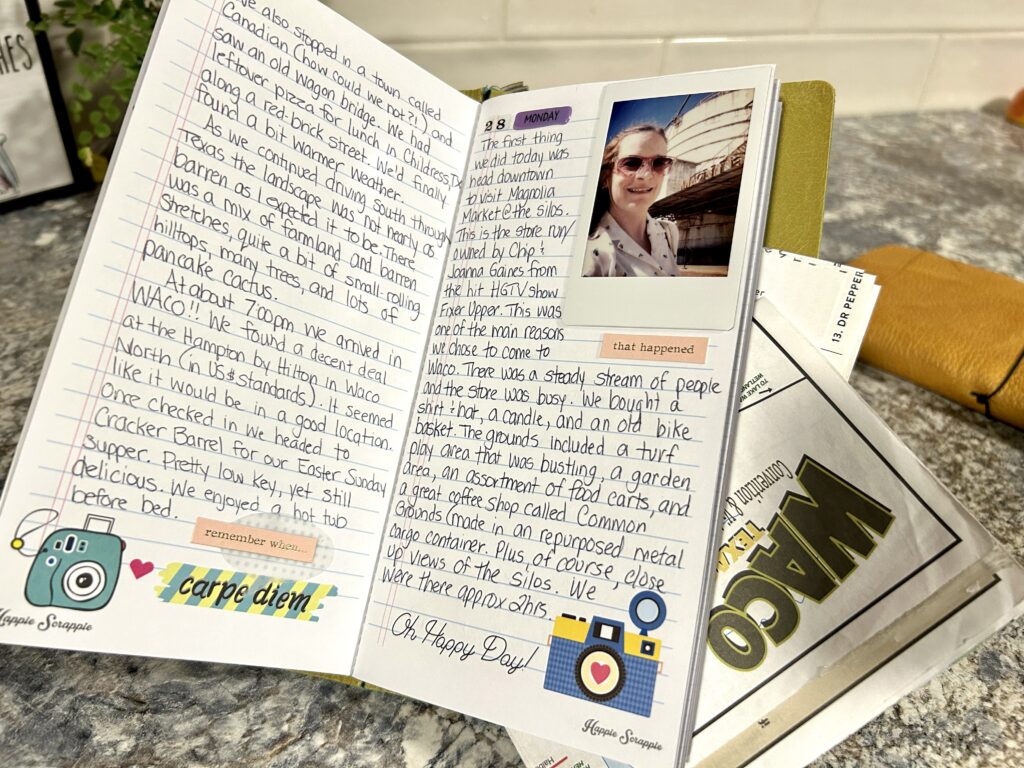 We also stopped in a town called
Canadian (how could we not?!) and
saw an old wagon bridge. We had
leftover pizza for lunch in Childress, Tx
along a red-brick street. We'd finally
found a bit warmer weather.
As we continued driving south through
Texas the landscape was not nearly as
barren as I expected it to be. There
was a mix of farmland and barren
stretches, quite a bit of small rolling
hilltops, many trees, and lots of
pancake cactus.
At about 7:00pm we arrived in
WACO!! We found a decent deal
at the Hampton by Hilton in Waco
North (in US$ standards). It seemed
like it would be in a good location.
Once checked in we headed to
Cracker Barrel for our Easter Sunday
supper. Pretty low key, yet still
delicious. We enjoyed a hot tub
before bed.
remember when...
carpe diem
Happie Scrappie
28 MONDAY
The first thing
we did today was
head downtown
to visit Magnolia
Market @ the silos.
This is the store run/
owned by Chip &
Joanna Gaines from
the hit HGTV show
Fixer Upper. This was
one of the main reasons
we chose to come to
Waco. There was a steady stream of people
and the store was busy. We bought a
shirt & hat, a candle, and an old bike
basket. The grounds included a turf
play area that was bustling, a garden
area, an assortment of food carts, and
a great coffee shop called Common
Grounds (made in an repurposed metal
cargo container. Plus, of course, close
up views of the silos. We
were there approx 2hrs.
Oh Happy Day!
that happened
Happie Scrappie
13. DR PEPPER
TO LAKE
WETLAN
WACO
TEXA
Convention &
HES